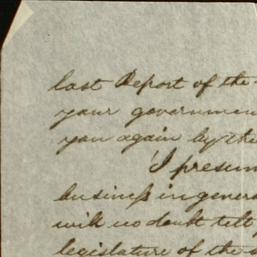 last Report of the
your governmen
you again by the
I presum
business in genera
will no doubt tell
legislature of the s